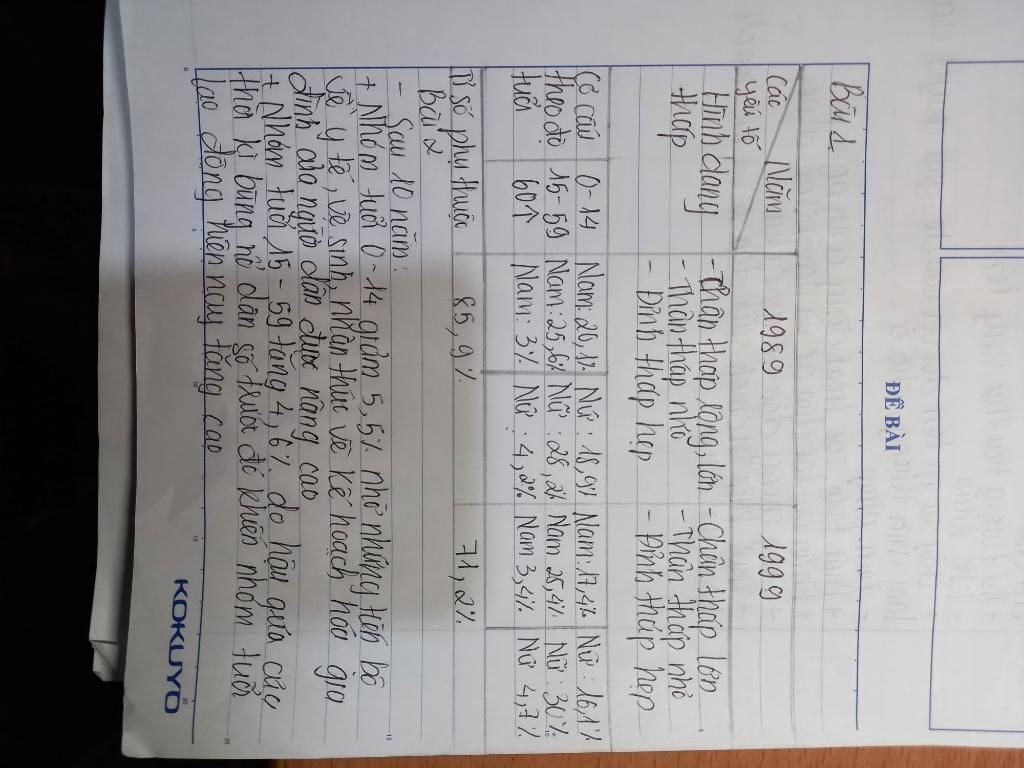 ĐỀ BÀI
Bài 1
Năm
Các yếu tố
1989
1999
Hình dạng tháp
- Chân tháp rộng, lớn
- Thân tháp nhỏ
- Đỉnh tháp hẹp
- Chân tháp lớn
- Thân tháp nhỏ
- Đỉnh tháp hẹp
Cơ cấu theo độ tuổi
0-14 Nam: 20,1% Nữ: 18,9% Nam: 17,4% Nữ: 16,1%
15-59 Nam: 25,6% Nữ: 28,2% Nam 25,4% Nữ: 30%
60↑ Nam: 3% Nữ: 4,2% Nam 3,4% Nữ 4,7%
Tỉ số phụ thuộc 85,9% 71,2%
Bài 2
- Sau 10 năm:
+ Nhóm tuổi 0-14 giảm 5,5% nhờ những tiến bộ
về y tế, vệ sinh, nhận thức về kế hoạch hóa gia
đình của người dân được nâng cao
+ Nhóm tuổi 15-59 tăng 4,6% do hậu quả của
thời kì bùng nổ dân số trước đó khiến nhóm tuổi
lao động hiện nay tăng cao
KOKUYO